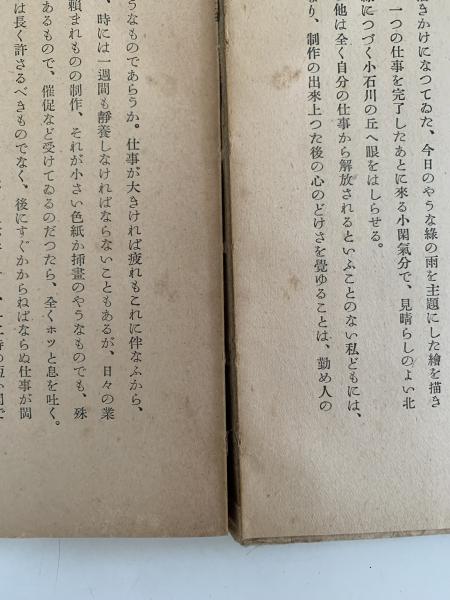 描きかけになつてゐた、今日のやうな綠の雨を主題にした繪を描き
一つの仕事を完了したあとに來る小閑氣分で、見晴らしのよい北
につづく小石川の丘へ眼をはしらせる。
他は全く自分の仕事から解放されるといふことのない私どもには、
り、制作の出來上つた後の心のどけさを覺ゆることは、勤め人の
うなものであらうか。仕事が大きければ疲れもこれに伴なふから、
、時には一週間も靜養しなければならないこともあるが、日々の業
賴まれものの制作、それが小さい色紙か揷畫のやうなものでも、殊
あるもので、催促など受けてゐるのだつたら、全くホッと息を吐く。
は長く許さるべきものでなく、後にすぐかからねばならぬ仕事が閊